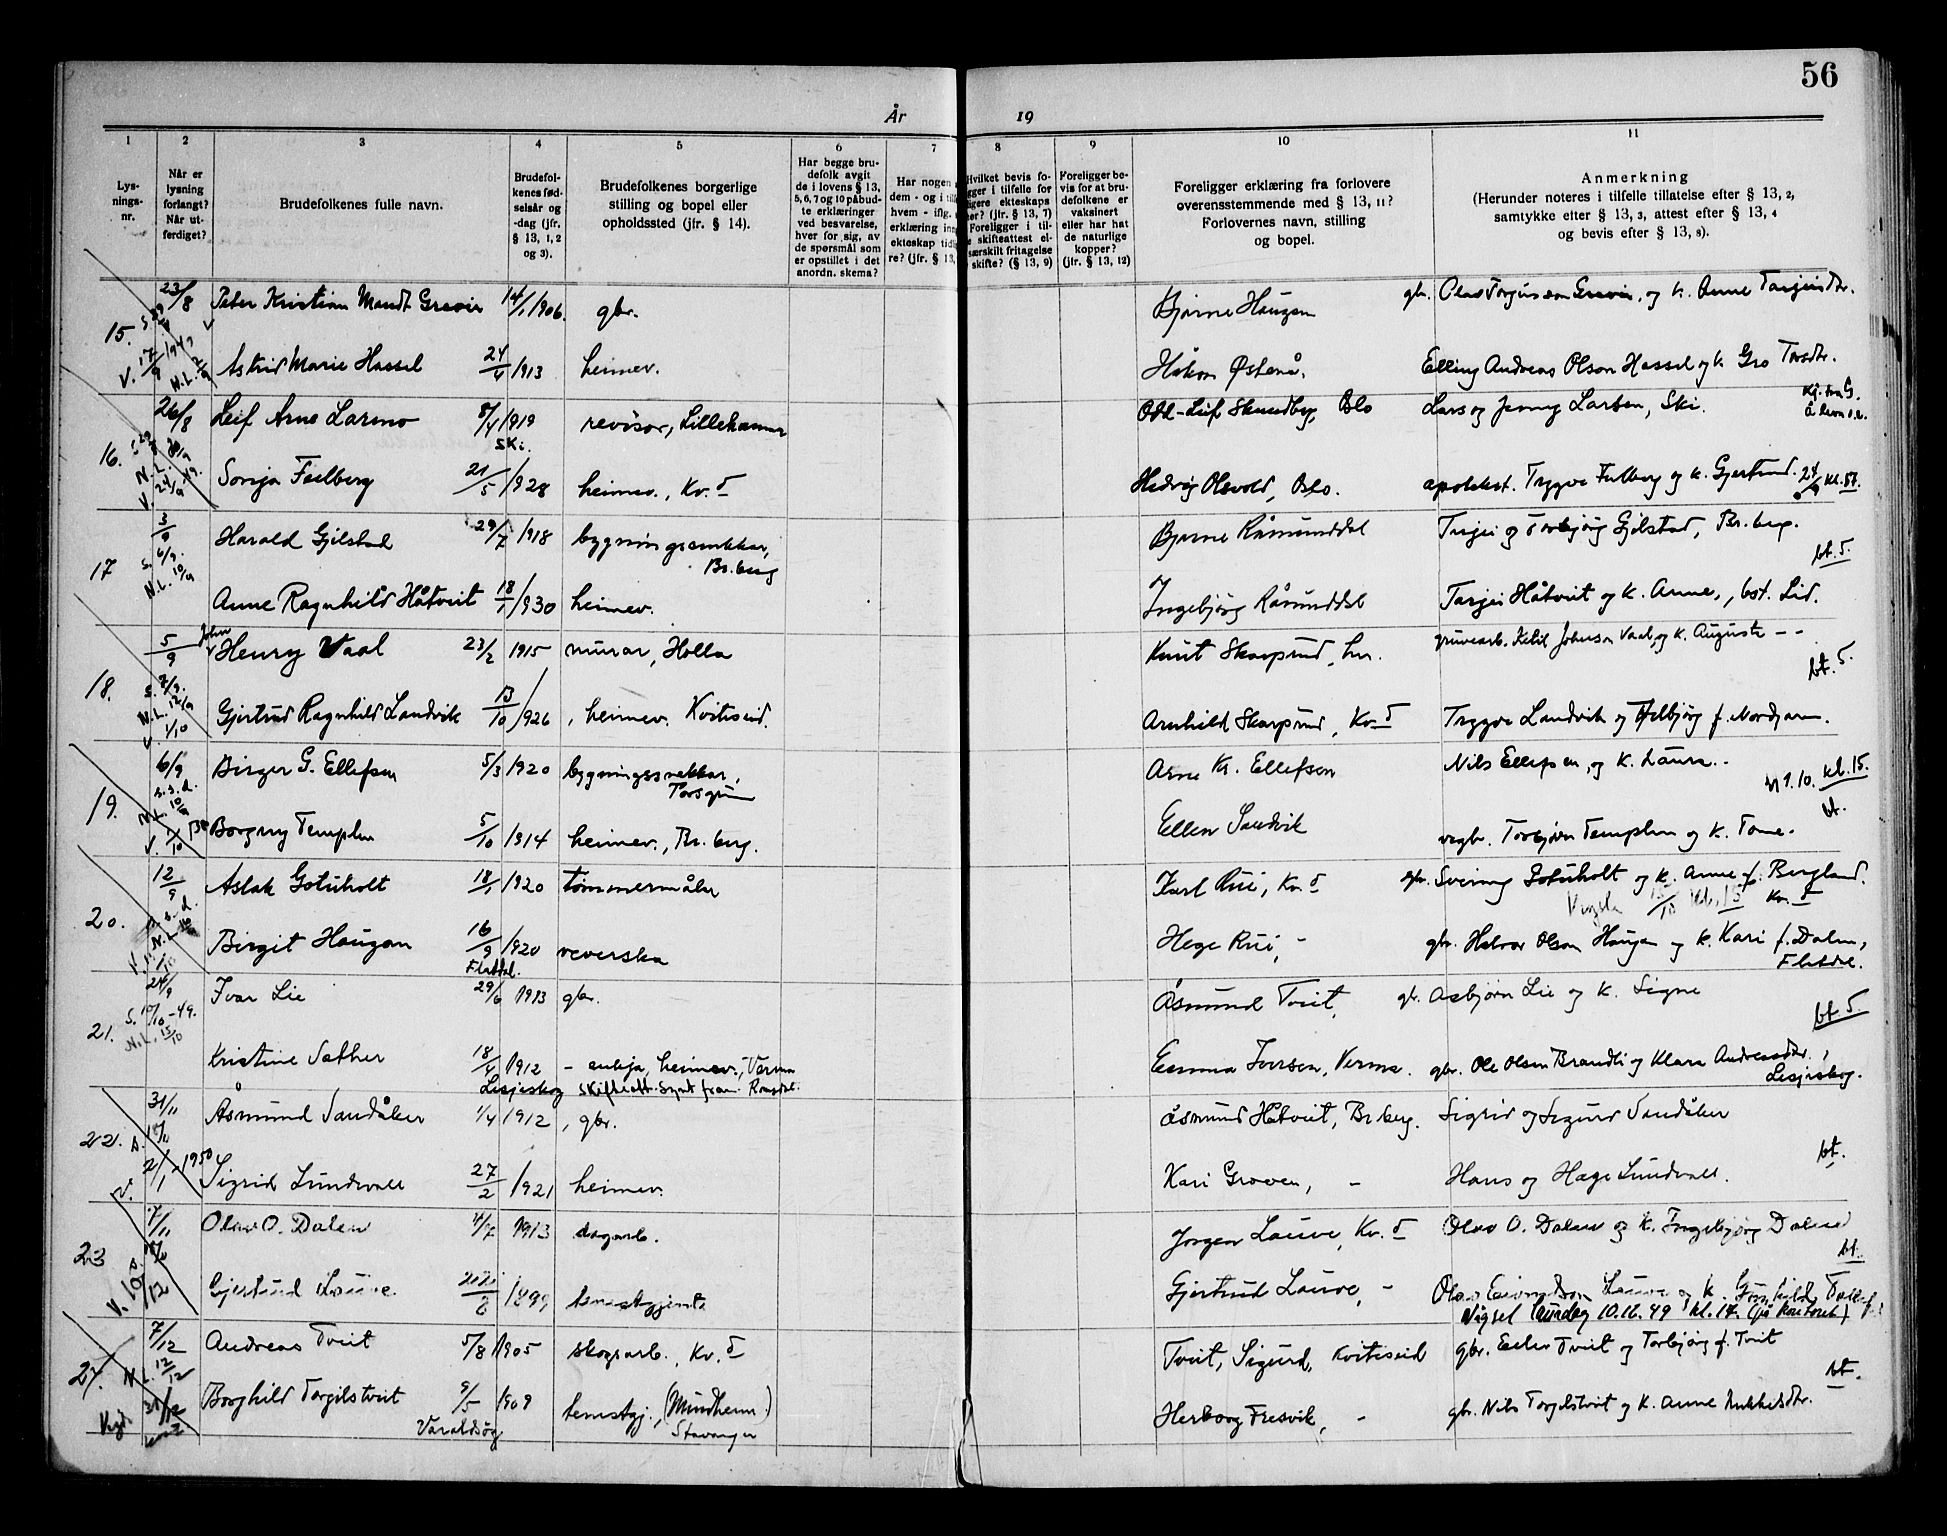 56
År 19
1 2 3 4 5 6 7 8 9 10 11
Lys-
nings-
nr.
Når er
lysning
forlangt?
Når ut-
ferdiget?
Brudefolkenes fulle navn.
Brudefol-
kenes fød-
selsår og
-dag (jfr.
§ 13, 1, 2
og 3).
Brudefolkenes borgerlige
stilling og bopel eller
opholdssted (jfr. § 14).
Har begge bru-
defolk avgit
de i lovens § 13,
5, 6, 7 og 10 påbud-
te erklæringer
ved besvarelse,
hver for sig, av
de spørsmål som
er opstillet i det
anordn. skema?
Har nogen
dem - og i tilf
hvem - iflg.
erklæring inn
ekteskap tidl
re? (jfr. § 13,
Hvilket bevis fo-
gger i tilfelle for
ligere ekteskaps
her? (jfr. § 13, 7)
Foreligger i til-
e skifteattest el-
særskilt fritagelse
skifte? (§ 13, 9)
Foreligger be-
vis for at bru-
defolkene er
vaksinert
eller har hat
de naturlige
kopper?
(jfr. § 13, 12)
Foreligger erklæring fra forlovere
overensstemmende med § 13, 11?
Forlovernes navn, stilling
og bopel.
Anmerkning
(Herunder noteres i tilfelle tillatelse efter § 13, 2,
samtykke efter § 13, 3, attest efter § 13, 4
og bevis efter § 13, 8).
15. 23/8 Peter Kristian Mandt Gravir 14/1 1906. gbr. Bjarne Haugen gbr. Olav Torgusson Gravir, og k. Anne Tarjeisdtr.
V. 17/9 1949 N.L. 2/9 Astrid Marie Hassel 24/4 1913 heimev. Håkon Østenå. Elling Andreas Olson Hassel og k. Gro Torsdtr.
16. 26/8 Leif Arne Larmo 8/4 1919 revisor, Lillehammer Odd-Leif Skundberg, Oslo Lars og Jenny Larsen, Ski.
Ski.
V. 24/9 49. Sonja Feilberg 21/5 1928 heimev., Kv.d Hedvig Olsvold, Oslo. apotekest. Trygve Feilberg og k. Gjertrud. 24/9 kl. 17.
17 3/9 Harald Gjilstad 29/7 1918 bygningssnekkar, Bjarne Råmunddal Tarjei og Torbjørg Gjilstad, Br.berg.
Br.berg
bt. 5.
N.L. 10/9 Anne Ragnhild Håtveit 18/1 1930 heimev. Ingebjørg Råmunddal Tarjei Håtveit og k. Anne,, bst. Lid.
18. 5/9 John Henry Vaal 23/2 1915 murar, Holla Knut Skarprud, hr. gruvearb. Ketil Johnson Vaal, og k. Auguste - -
bt. 5.
s. 7/9. N.L. 12/9 V. 1/10 Gjertrud Ragnhild Landvik 13/10 1926, heimev. Kviteseid. Arnhild Skarprud, Kv.d Trygve Landvik og Helbjørg f. Nordjarn.
19. 6/9 Birger G. Ellefsen 5/3 1920 bygningssnekkar, Arne Kr. Ellefsen Nils Ellefsen, og k. Laura.
Porsgrunn
1.10. kl. 15.
bt.
N.L. 10/9 V. 1/10 Borgny Templen 5/10 1914 heimev., Br.berg. Ellen Sandvik vegbr. Torbjørn Templen og k. Tone.
20. 12/9 Aslak Gotuholt 18/1 1920 tømmermåler Karl Rui, Kv.d gbr. Sveinung Gotuholt og k. Anne f. Bergland.
Vigsla 15/10 kl. 15 Kv.d
Birgit Haugan 16/9 1920 veverska Hege Rui, - gbr. Halvor Olson Haugen og k. Kari f. Dalen,
Flatdal. Flatdal.
21. 24/9 Ivar Lie 29/6 1913 gbr. Åsmund Tveit, gbr. Asbjørn Lie og k. Signe
S. 10/10-49. N.L. 15/10
bt. 5.
Kristine Sæther 18/4 1912 - enkja, heimev., Verma Emma Iversen, Verma. gbr. Ole Olsen Brandli og Klara Andreasdtr.,
Lesjaskog Skifteatt. Synt fram. Romsdal. Lesjaskog.
22. 31/11 Åsmund Sandåker 1/4 1912, gbr. Åsmund Håtveit, Br.berg. Sigrid og Sigurd Sandåker
bt.
V. 2/1 1950 Sigrid Lundvall 27/2 1921 heimev. Kari Groven, - Hans og Hæge Lundvall.
23 7/11 Olav O. Dalen 4/7 1913 skogarb. Jorgen Lauve, Kv.d Olav O. Dalen og k. Ingebjørg Dalen
bt.
V. 10/12 Gjertrud Lauve. 22/8 1899 tenestgjente Gjertrud Lauve, - Olav Eivindson Lauve og k. Gunhild
Vigsel laurdag 10.12.49 kl. 14. (på kontoret)
24. 7/12 Andreas Tveit 5/8 1905 skogsarb., Kv.d Tveit, Sigurd, Kviteseid gbr. Eilev Tveit og Torbjørg f. Tveit
N.L. 12/12
bt.
Vigd 31/12 Borghild Torgilstveit 9/5 1909 tenestgj., (Mundheim.) Herborg Fresvik, - gbr. Nils Torgilstveit og k. Anne Mikkelsdtr.
Varaldsøy Stavanger